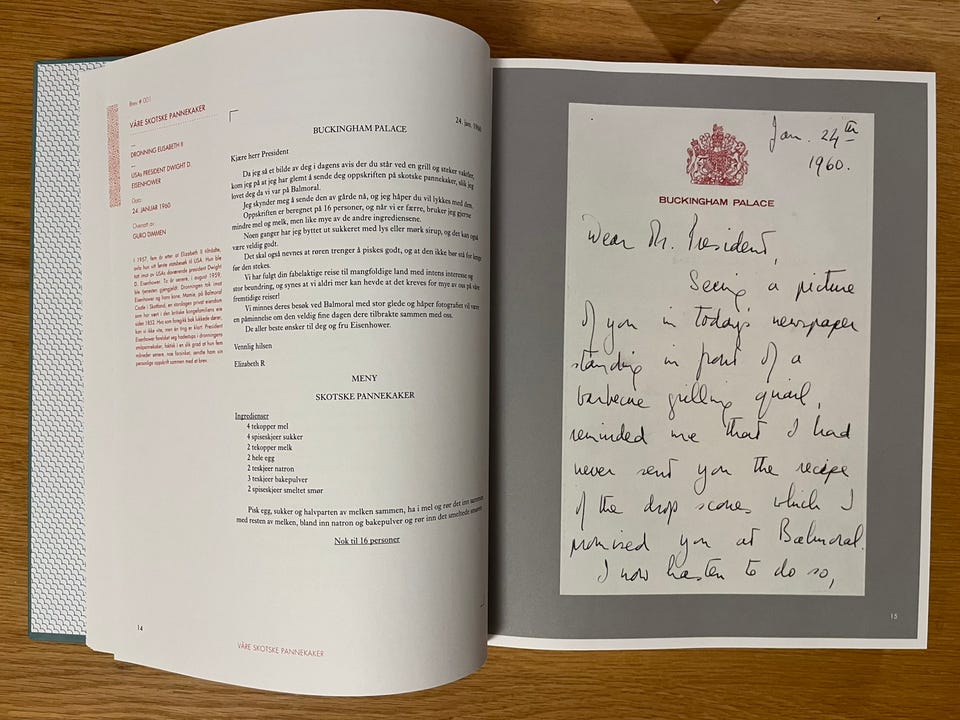 Brev # 001
VÅRE SKOTSKE PANNEKAKER
DRONNING ELISABETH II
—
USAs PRESIDENT DWIGHT D.
EISENHOWER
Dato
24. JANUAR 1960
Oversatt av
GURO DIMMEN
I 1957, fem år etter at Elizabeth II tiltrådte,
avla hun sitt første statsbesøk til USA. Hun ble
tatt imot av USAs daværende president Dwight
D. Eisenhower. To år senere, i august 1959,
ble tjenesten gjengjeldt. Dronningen tok imot
Eisenhower og hans kone, Mamie, på Balmoral
Castle i Skottland, en storslagen privat eiendom
som har vært i den britiske kongefamiliens eie
siden 1852. Hva som foregikk bak lukkede dører,
kan vi ikke vite, men én ting er klart: President
Eisenhower forelsket seg hodestups i dronningens
småpannekaker, faktisk i en slik grad at hun fem
måneder senere, noe forsinket, sendte ham sin
personlige oppskrift sammen med et brev.
24. jan. 1960
BUCKINGHAM PALACE
Kjære herr President
Da jeg så et bilde av deg i dagens avis der du står ved en grill og steker vaktler,
kom jeg på at jeg har glemt å sende deg oppskriften på skotske pannekaker, slik jeg
lovet deg da vi var på Balmoral.
Jeg skynder meg å sende den av gårde nå, og jeg håper du vil lykkes med den.
Oppskriften er beregnet på 16 personer, og når vi er færre, bruker jeg gjerne
mindre mel og melk, men like mye av de andre ingrediensene.
Noen ganger har jeg byttet ut sukkeret med lys eller mørk sirup, og det kan også
være veldig godt.
Det skal også nevnes at røren trenger å piskes godt, og at den ikke bør stå for lenge
før den stekes.
Vi har fulgt din fabelaktige reise til mangfoldige land med intens interesse og
stor beundring, og synes at vi aldri mer kan hevde at det kreves for mye av oss på våre
fremtidige reiser!
Vi minnes deres besøk ved Balmoral med stor glede og håper fotografiet vil være
en påminnelse om den veldig fine dagen dere tilbrakte sammen med oss.
De aller beste ønsker til deg og fru Eisenhower.
Vennlig hilsen
Elizabeth R
MENY
SKOTSKE PANNEKAKER
Ingredienser
4 tekopper mel
4 spiseskjeer sukker
2 tekopper melk
2 hele egg
2 teskjeer natron
3 teskjeer bakepulver
2 spiseskjeer smeltet smør
Pisk egg, sukker og halvparten av melken sammen, ha i mel og rør det inn sammen
med resten av melken, bland inn natron og bakepulver og rør inn det smeltede smøret
Nok til 16 personer
14
VÅRE SKOTSKE PANNEKAKER
Jan. 24th
1960.
BUCKINGHAM PALACE
Dear Mr. President,
Seeing a picture
of you in today's newspaper
standing in front of a
barbecue grilling quail,
reminded me that I had
never sent you the recipe
of the drop scones which I
promised you at Balmoral.
I now hasten to do so,
15